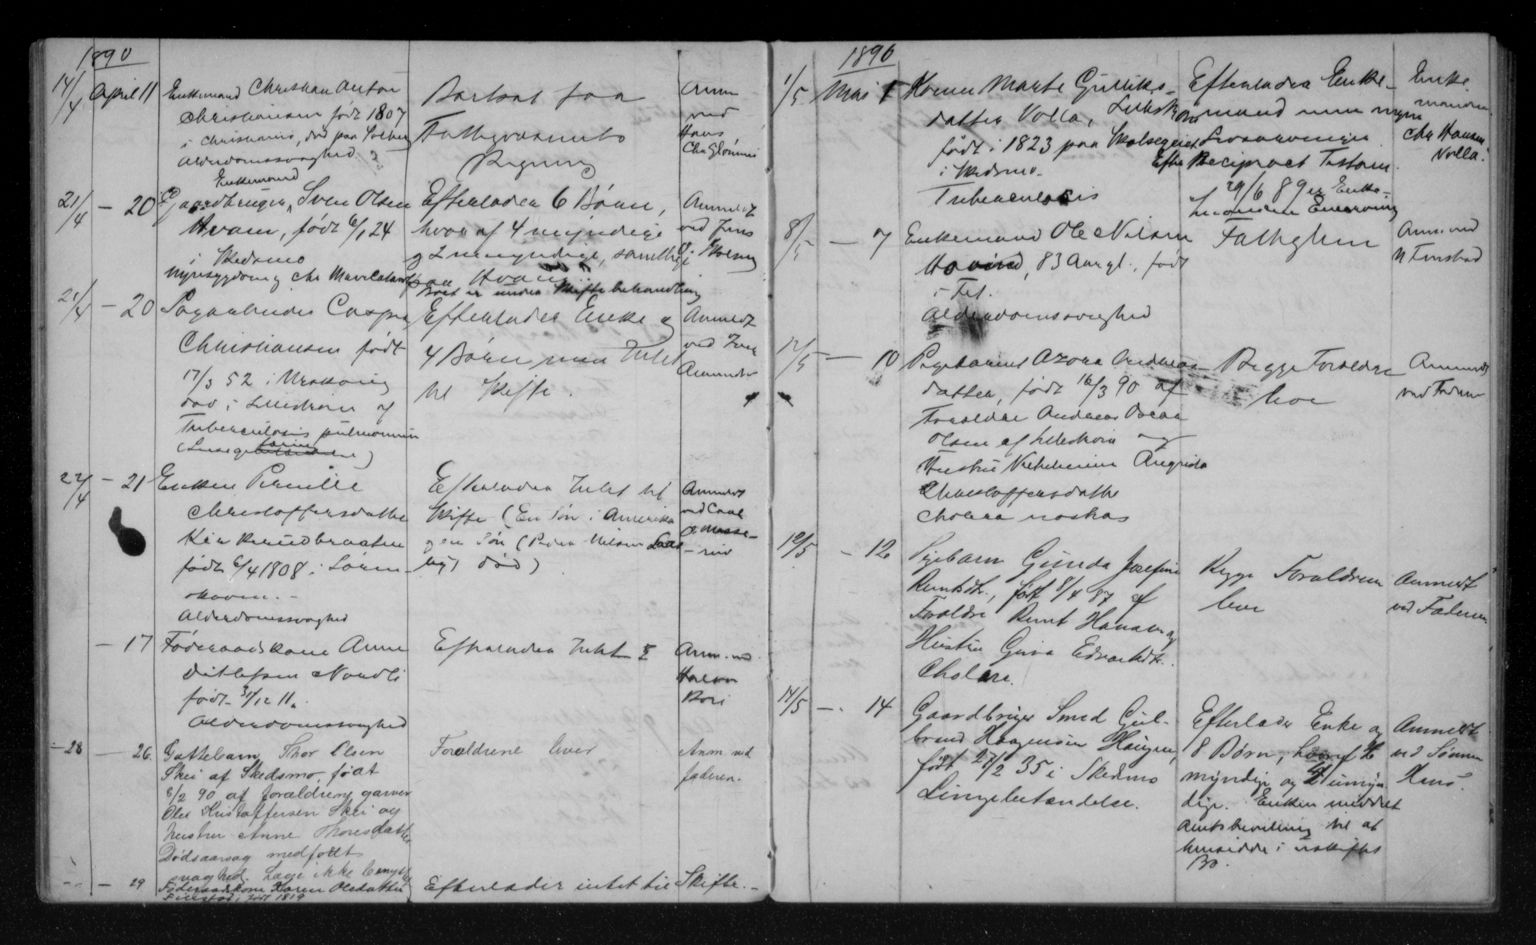 1890
14/4 April 11 Enkemand Christian Anton
Christiansen født 1807
i Christiania, død paa
Alderdomssvaghed
Bortsat paa
Fattigvæsenets
Regning
Anm
ved
Hans
Chr Glømmi
21/4 — 20 Enkemand
Gaardbruger Sven Olsen
Hvam, født 6/1 24
i Skedsmo
Nyresygdom og chr Mavekatarrh
Efterlader 6 Børn,
hvoraf 4 myndige
og 2 umyndige, samtlige
paa Hvam
Boet er under Skiftebehandling
Anmeldt
ved Jens
21/4 — 20
Christiansen født
17/3 52 i Urskoug
død i Lillestrøm af
Tuberculosis pulmonum
Efterlader Enke og
4 Børn, men Intet
til Skifte.
Anmeldt
ved
22/4 — 21 Enken Pernille
Christoffersdatter
født 6/4 1808 i Sørum
Alderdomssvaghed
Efterlader Intet til
Skifte (En Søn i Amerika
og en Søn (Peder Nilsen
død)
Anmeldt
ved Carl
— 17 Føderaadskone Anne
Ditlefsen Nordli
født 31/12 11.
Alderdomssvaghed
Efterlader Intet
Anm. ved
Halvor
28 — 26. Guttebarn Thor Olsen
Skei af Skedsmo, født
8/2 90 af forældrene garver
Ole Kristoffersen Skei og
hustru Anne Thoresdatter
Dødsaarsag medfødt
svaghed. Læge ikke benyttet
Forældrene lever
Anm ved
faderen.
— 29 Føderaadskone Karen Olsdatter
født 1819
Efterlader intet til Skifte. —
1890
1/5 Mai 1 Konen Marte Gulliks-
datter Volla, Lillestrøm
født i 1823 paa
i Skedsmo.
Tuberculosis
Efterlader Enke-
mand men ingen
Livsarvinger
Efter Reciproct Testam.
29/6 89 er Enke-
manden Enearving
Enke-
manden
Chr Hansen
Volla.
8/5 — 7 Enkemand Ole Nilsen
Hovind, 83 Aar gl., født
i Fet.
Alderdomssvaghed
Fattiglem
Anm. ved
N Tinstad
12/5 — 10 Pigebarnet Azora Andreas-
datter, født 16/3 90 af
Forældre Andreas Oscar
Olsen af Lillestrøm og
Hustru Vilhelmine Angrida
Christoffersdatter
Cholera nostras
Begge Forældre
lever
Anmeldt
ved Faderen
12/5 — 12 Pigebarn Gunda Josefine
Berntsdtr., født 8/4 87 af
Forældre Bernt Hansen og
Hustru Gina Edvardsdtr.
Cholera.
Begge Forældrene
lever
Anmeldt
ved Faderen
14/5 — 14 Gaardbruger Smed Gul-
brand Haagensen Haugen,
født 27/2 35 i Skedsmo
Lungebetændelse.
Efterlader Enke og
8 Børn, hvoraf
myndige og 4 umyn-
dige. Enken meddelt
Amtsbevilling til at
hensidde i uskiftet
Bo.
Anmeldt
ved Sønnen
Hans.